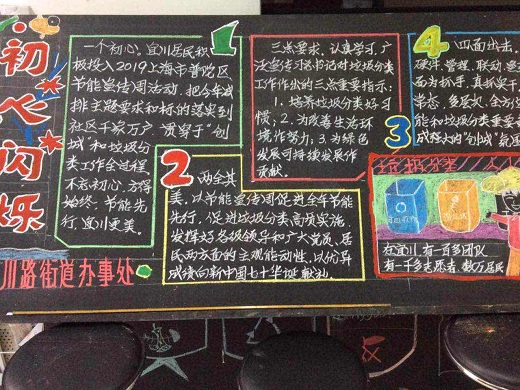 初心闪烁
川路街道办事处
1
一个初心。宜川居民积
极投入2019上海市普陀区
节能宣传周活动,把今年减
排主题要求和标的落实到
社区千家万户"贯穿于"创
城和垃圾分
类工作全过程,
不忘初心,方得
始终,节能先
行,宜川更美。
2
两全其
美,以节能宣传周促进全年节能
先行,促进垃圾分类高质实施,
发挥好各级领导和广大党员、居
民两方面的主观能动性,以优异
成绩向新中国七十华诞献礼。
3
三点要求,认真学习,广
泛宣传习书记对垃圾分类
工作作出的三点重要指示:
1.培养垃圾分类好习
惯;2.为改善生活环
境作努力;3.为绿色
发展可持续发展作
贡献。
4
四面出击,
硬件,管理,联动,宣
面为抓手,真抓实干
常态,多层次,全方位
能和垃圾分类
"创城"氛围
垃圾分类
在宜川有一百多团队
有一千多志愿者,数万居民